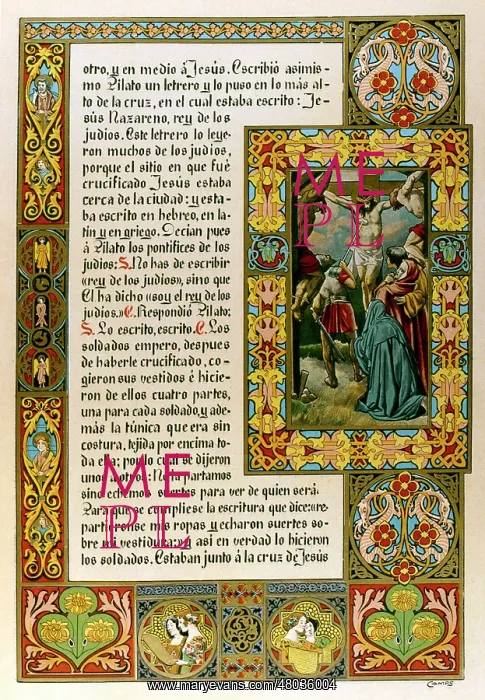 otro, y en medio á Jesús. Escribió asimis-
mo Pilato un letrero y lo puso en lo más al-
to de la cruz, en el cual estaba escrito: Je-
sús Nazareno, rey de los
judios. Este letrero lo leye-
ron muchos de los judios,
porque el sitio en que fué
crucificado Jesús estaba
cerca de la ciudad: y esta-
ba escrito en hebreo, en la-
tin y en griego. Decian pues
á Pilato los pontifices de los
judios: S. No has de escribir
«rey de los judios», sino que
El ha dicho «soy el rey de los
judios.» C. Respondió Pilato:
S. Lo escrito, escrito. C. Los
soldados empero, despues
de haberle crucificado, co-
gieron sus vestidos é hicie-
ron de ellos cuatro partes,
una para cada soldado, y ade-
más la túnica que era sin
costura, tejida por encima to-
da ella; por lo cual se dijeron
unos á otros: No la partamos
sino echemos suertes para ver de quien será.
Para que se cumpliese la escritura que dice: «re-
partieronse mis ropas y echaron suertes so-
bre mi vestidura:» y asi en verdad lo hicieron
los soldados. Estaban junto á la cruz de Jesús
ME
PL
ME
PL
Camps
www.maryevans.com/48036004